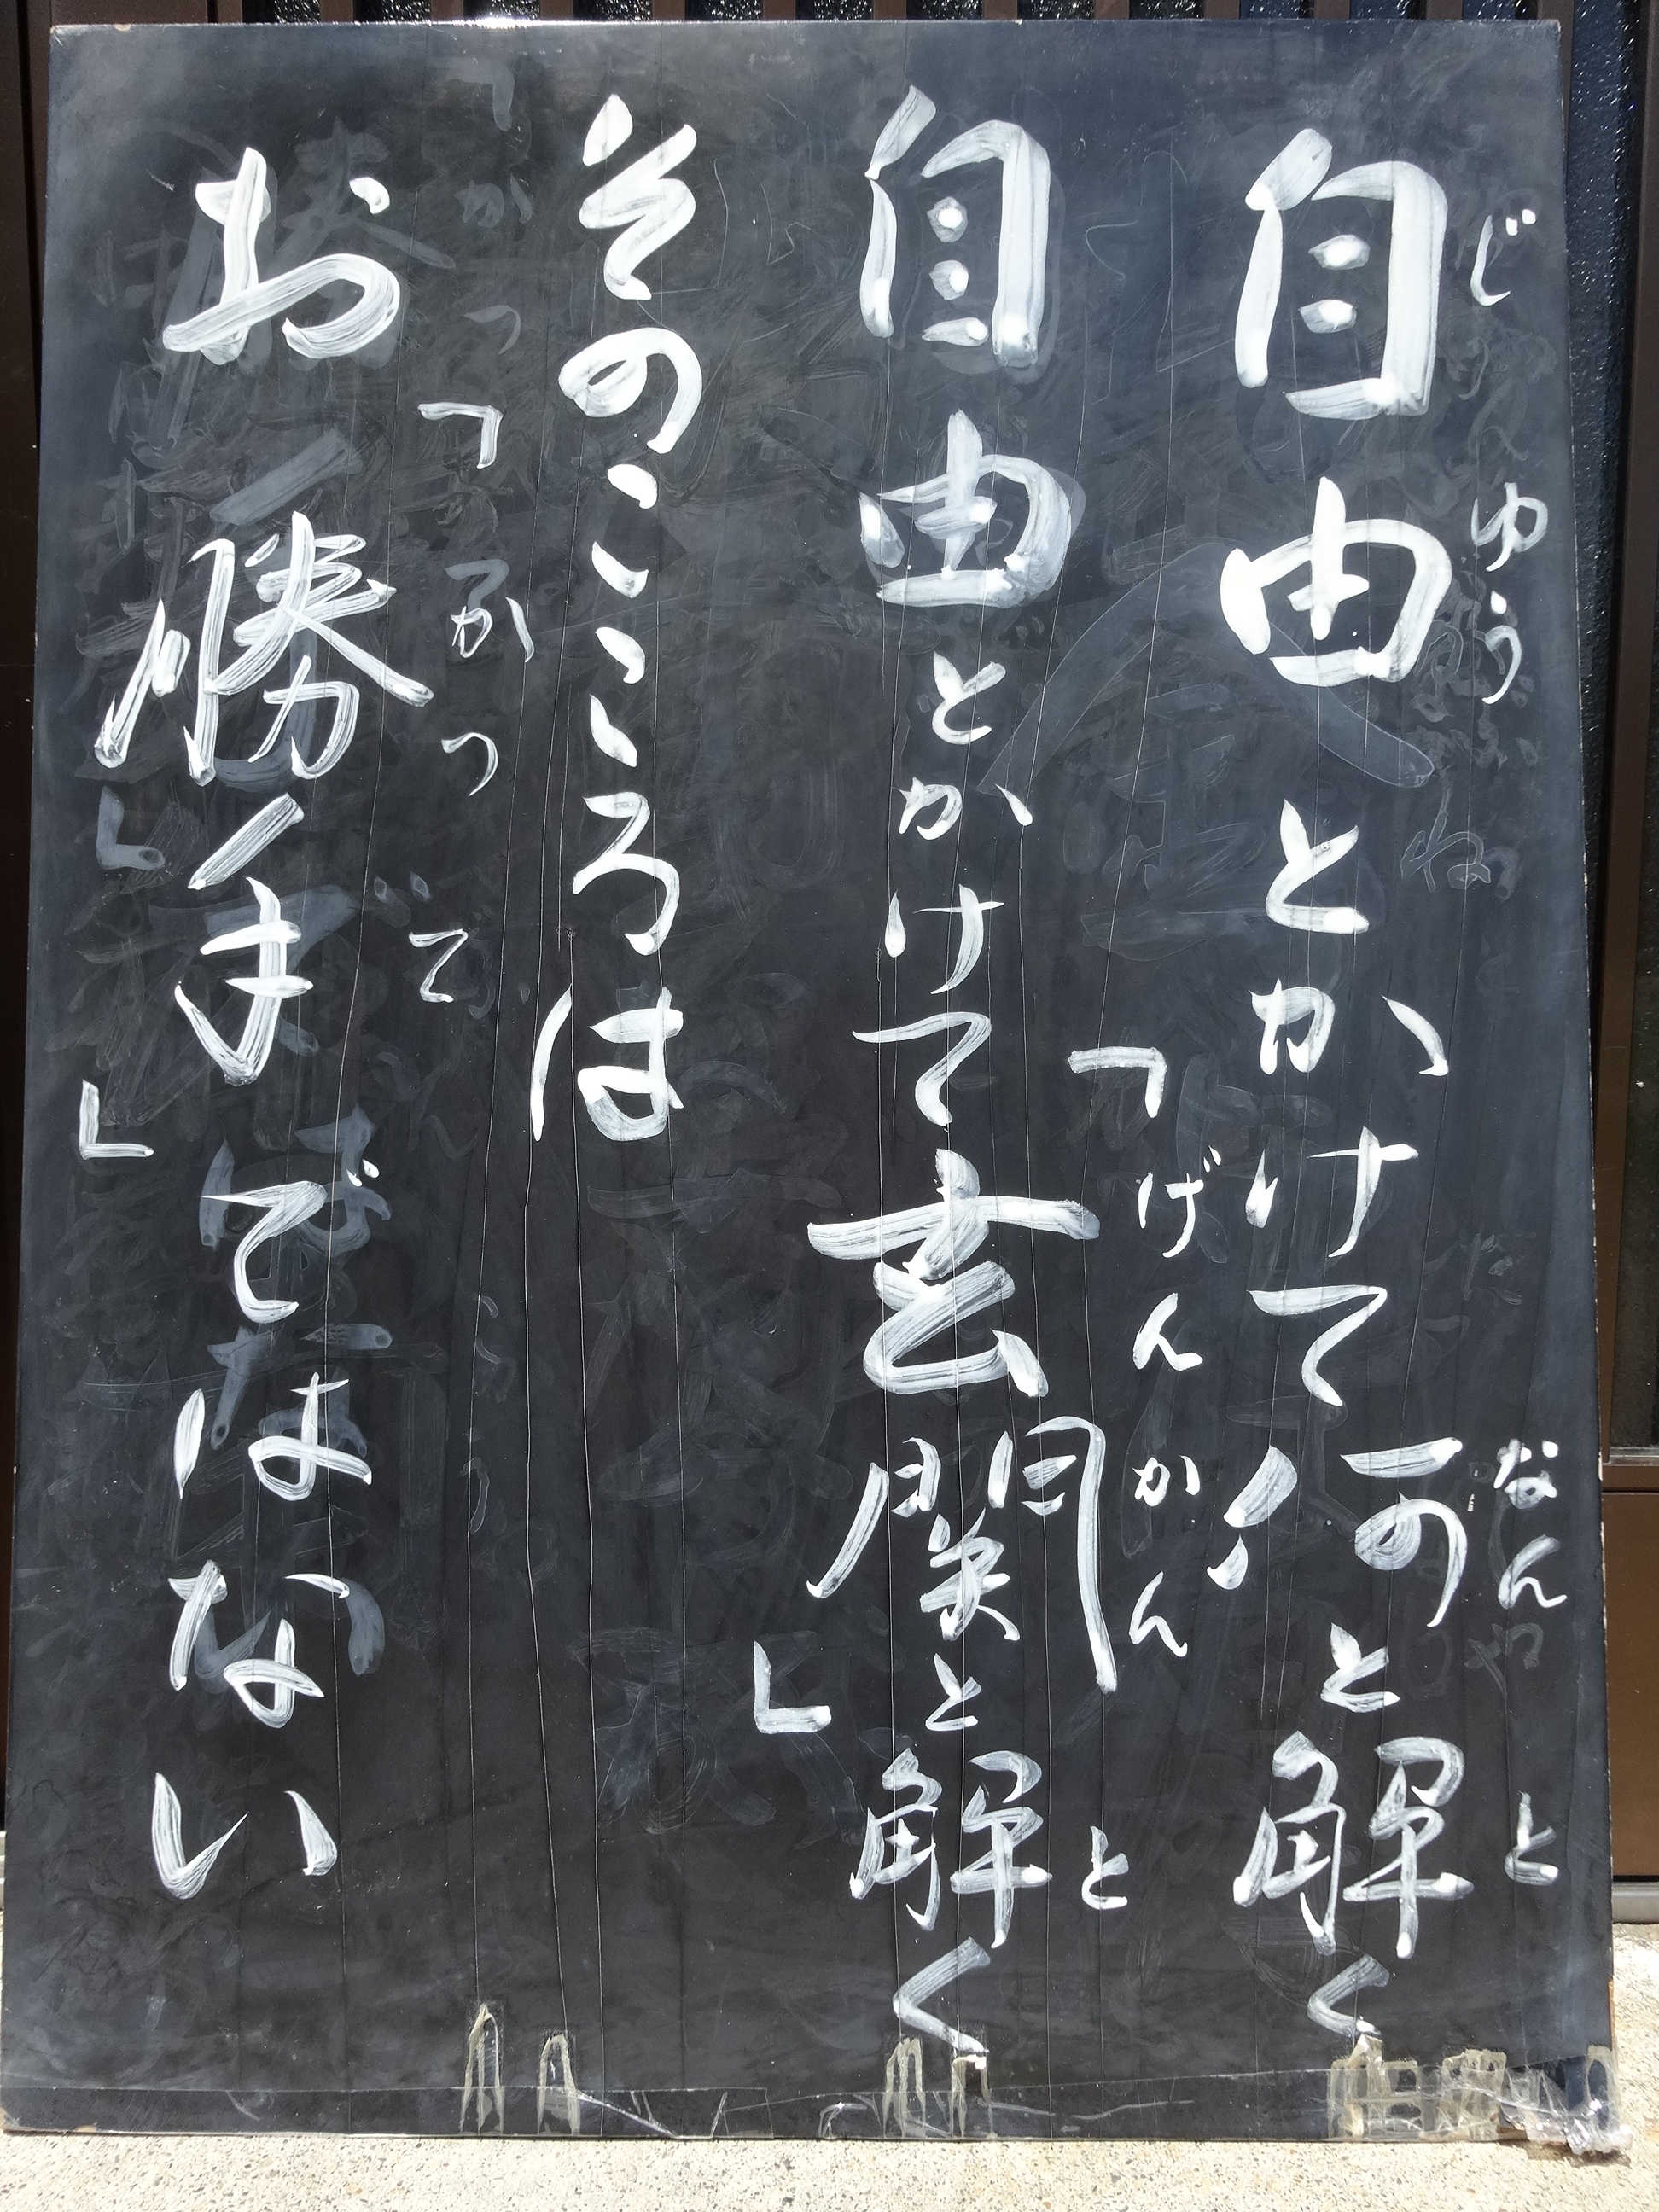 自由とかけて何と解く
じゆう なん と
自由とかけて「玄関」と解く
げんかん と
そのこころは
「お勝手」ではない
かって